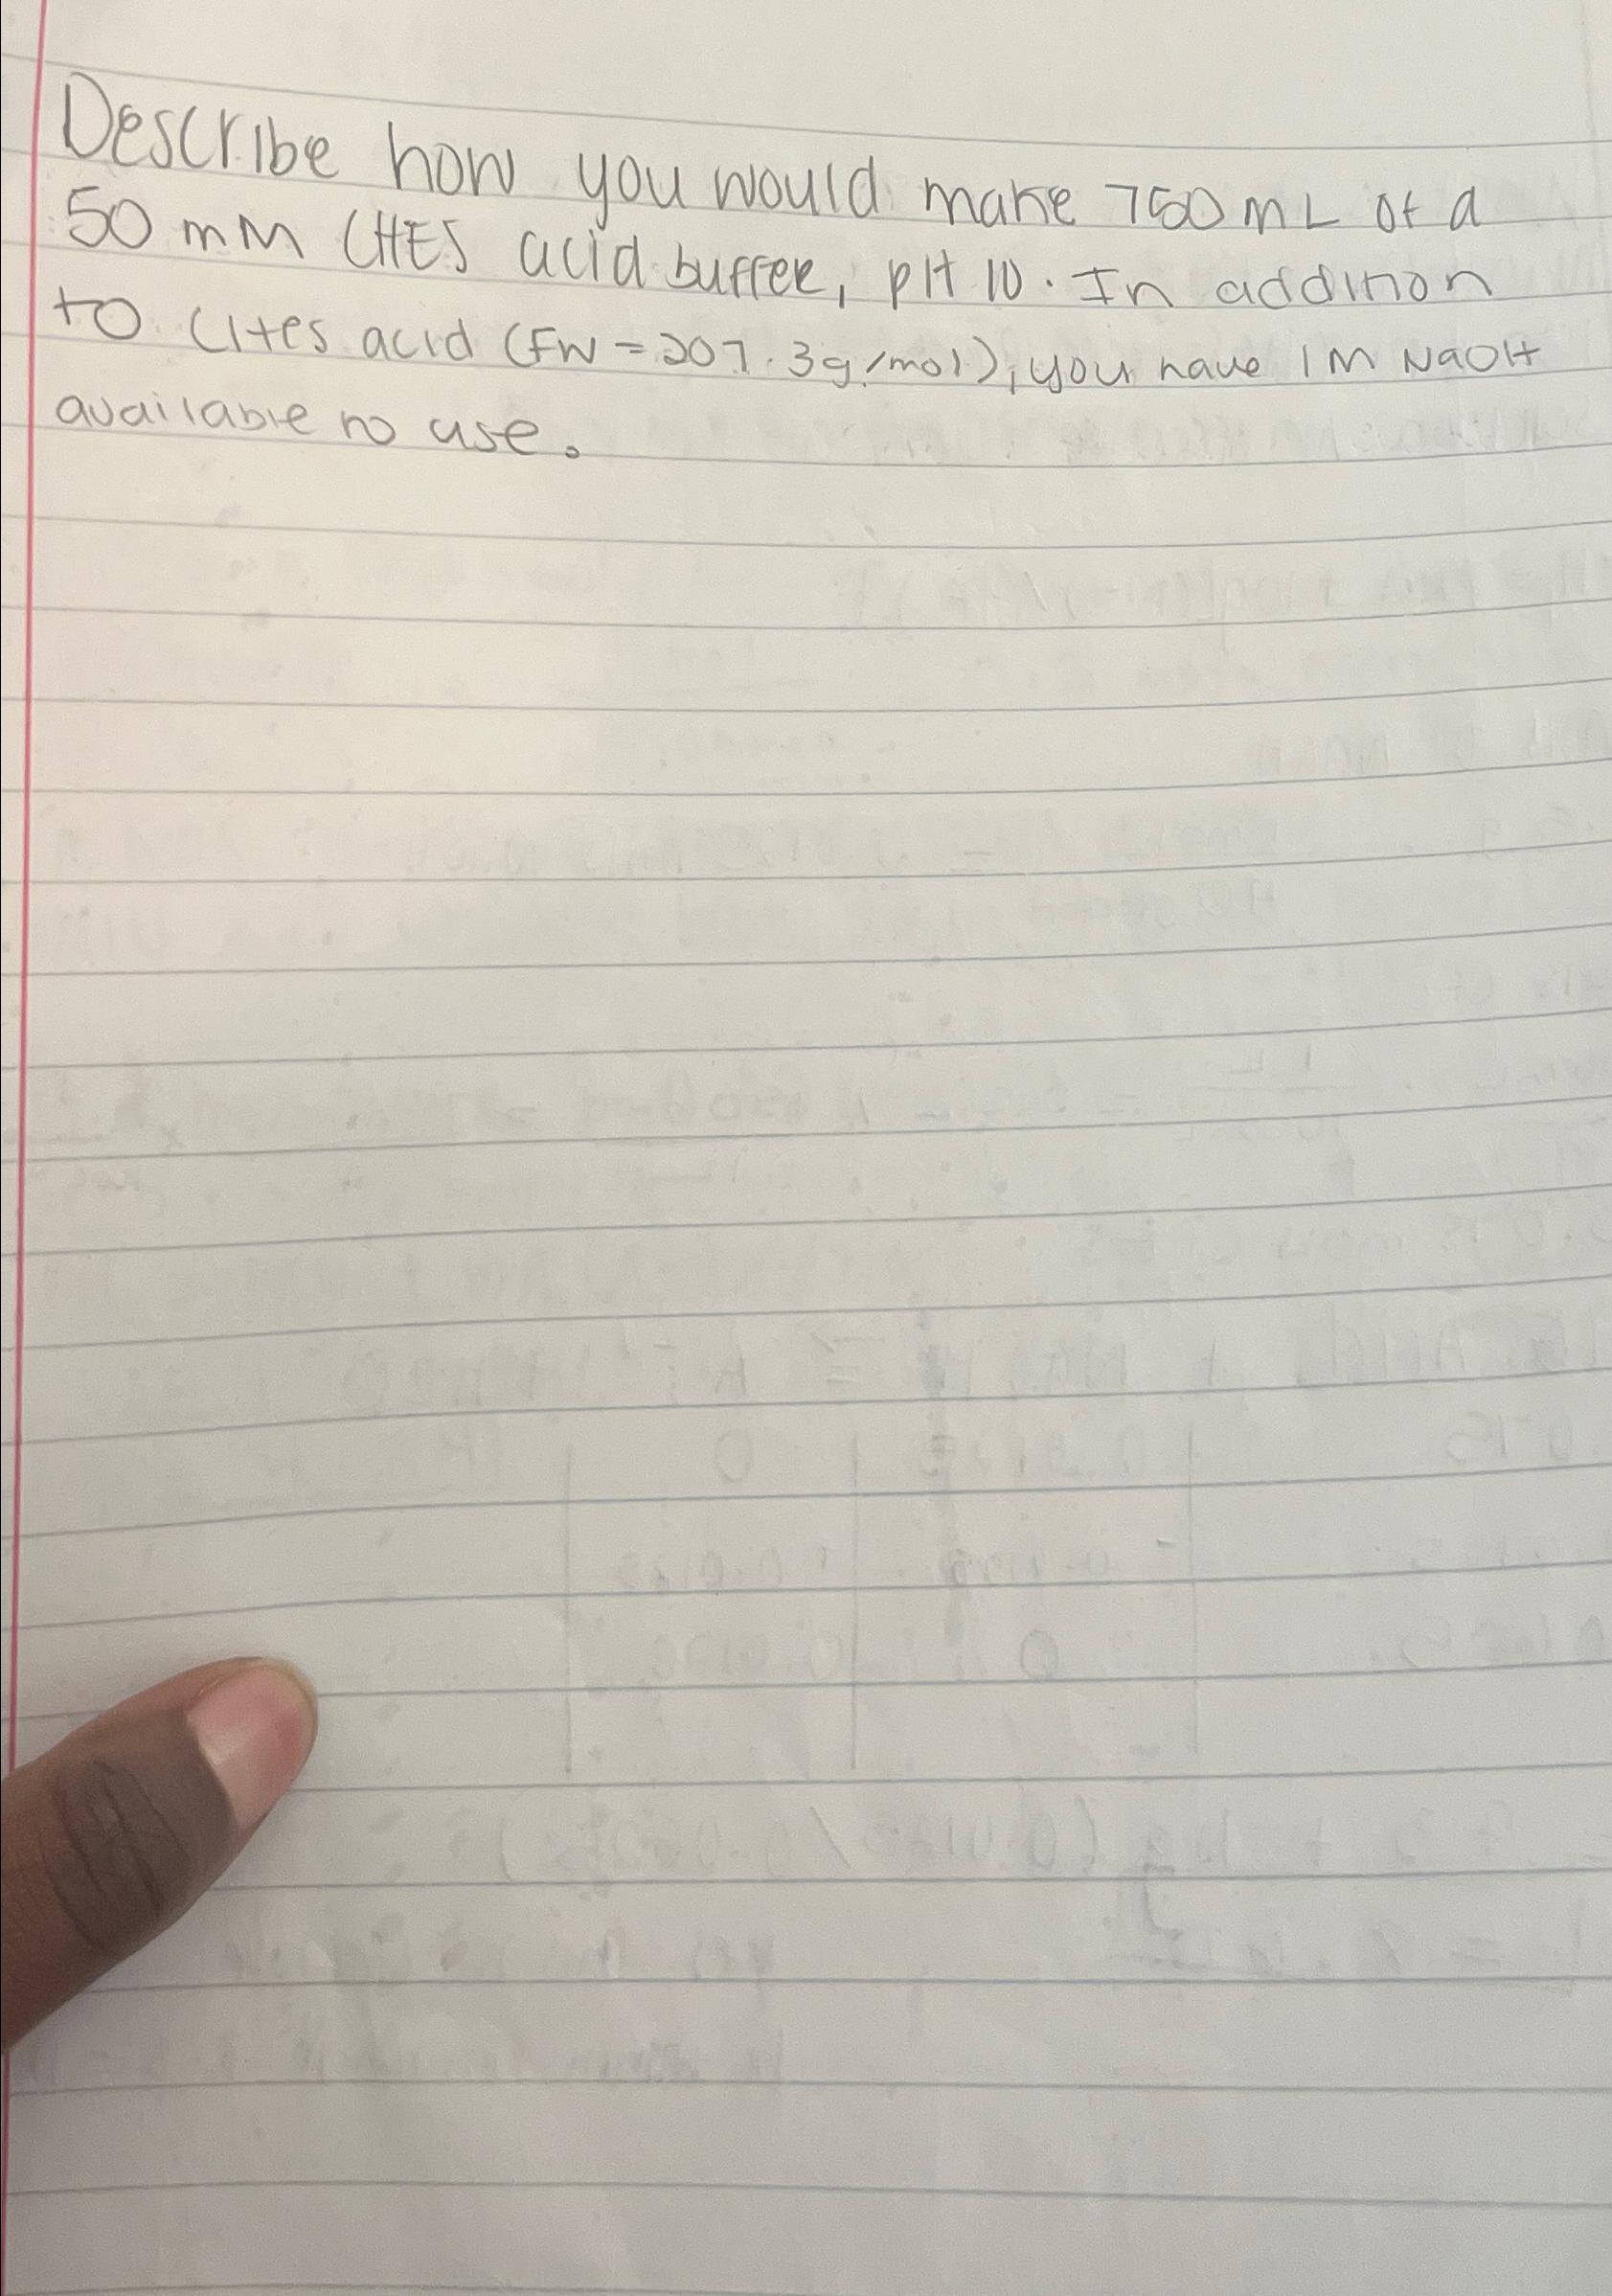 Describe how you would make 750 mL of a
50 mM CHES acid buffer, pH 10. In addition
to CHes acid (FW = 207.3g/mol), you have 1M NaOH
available to use.